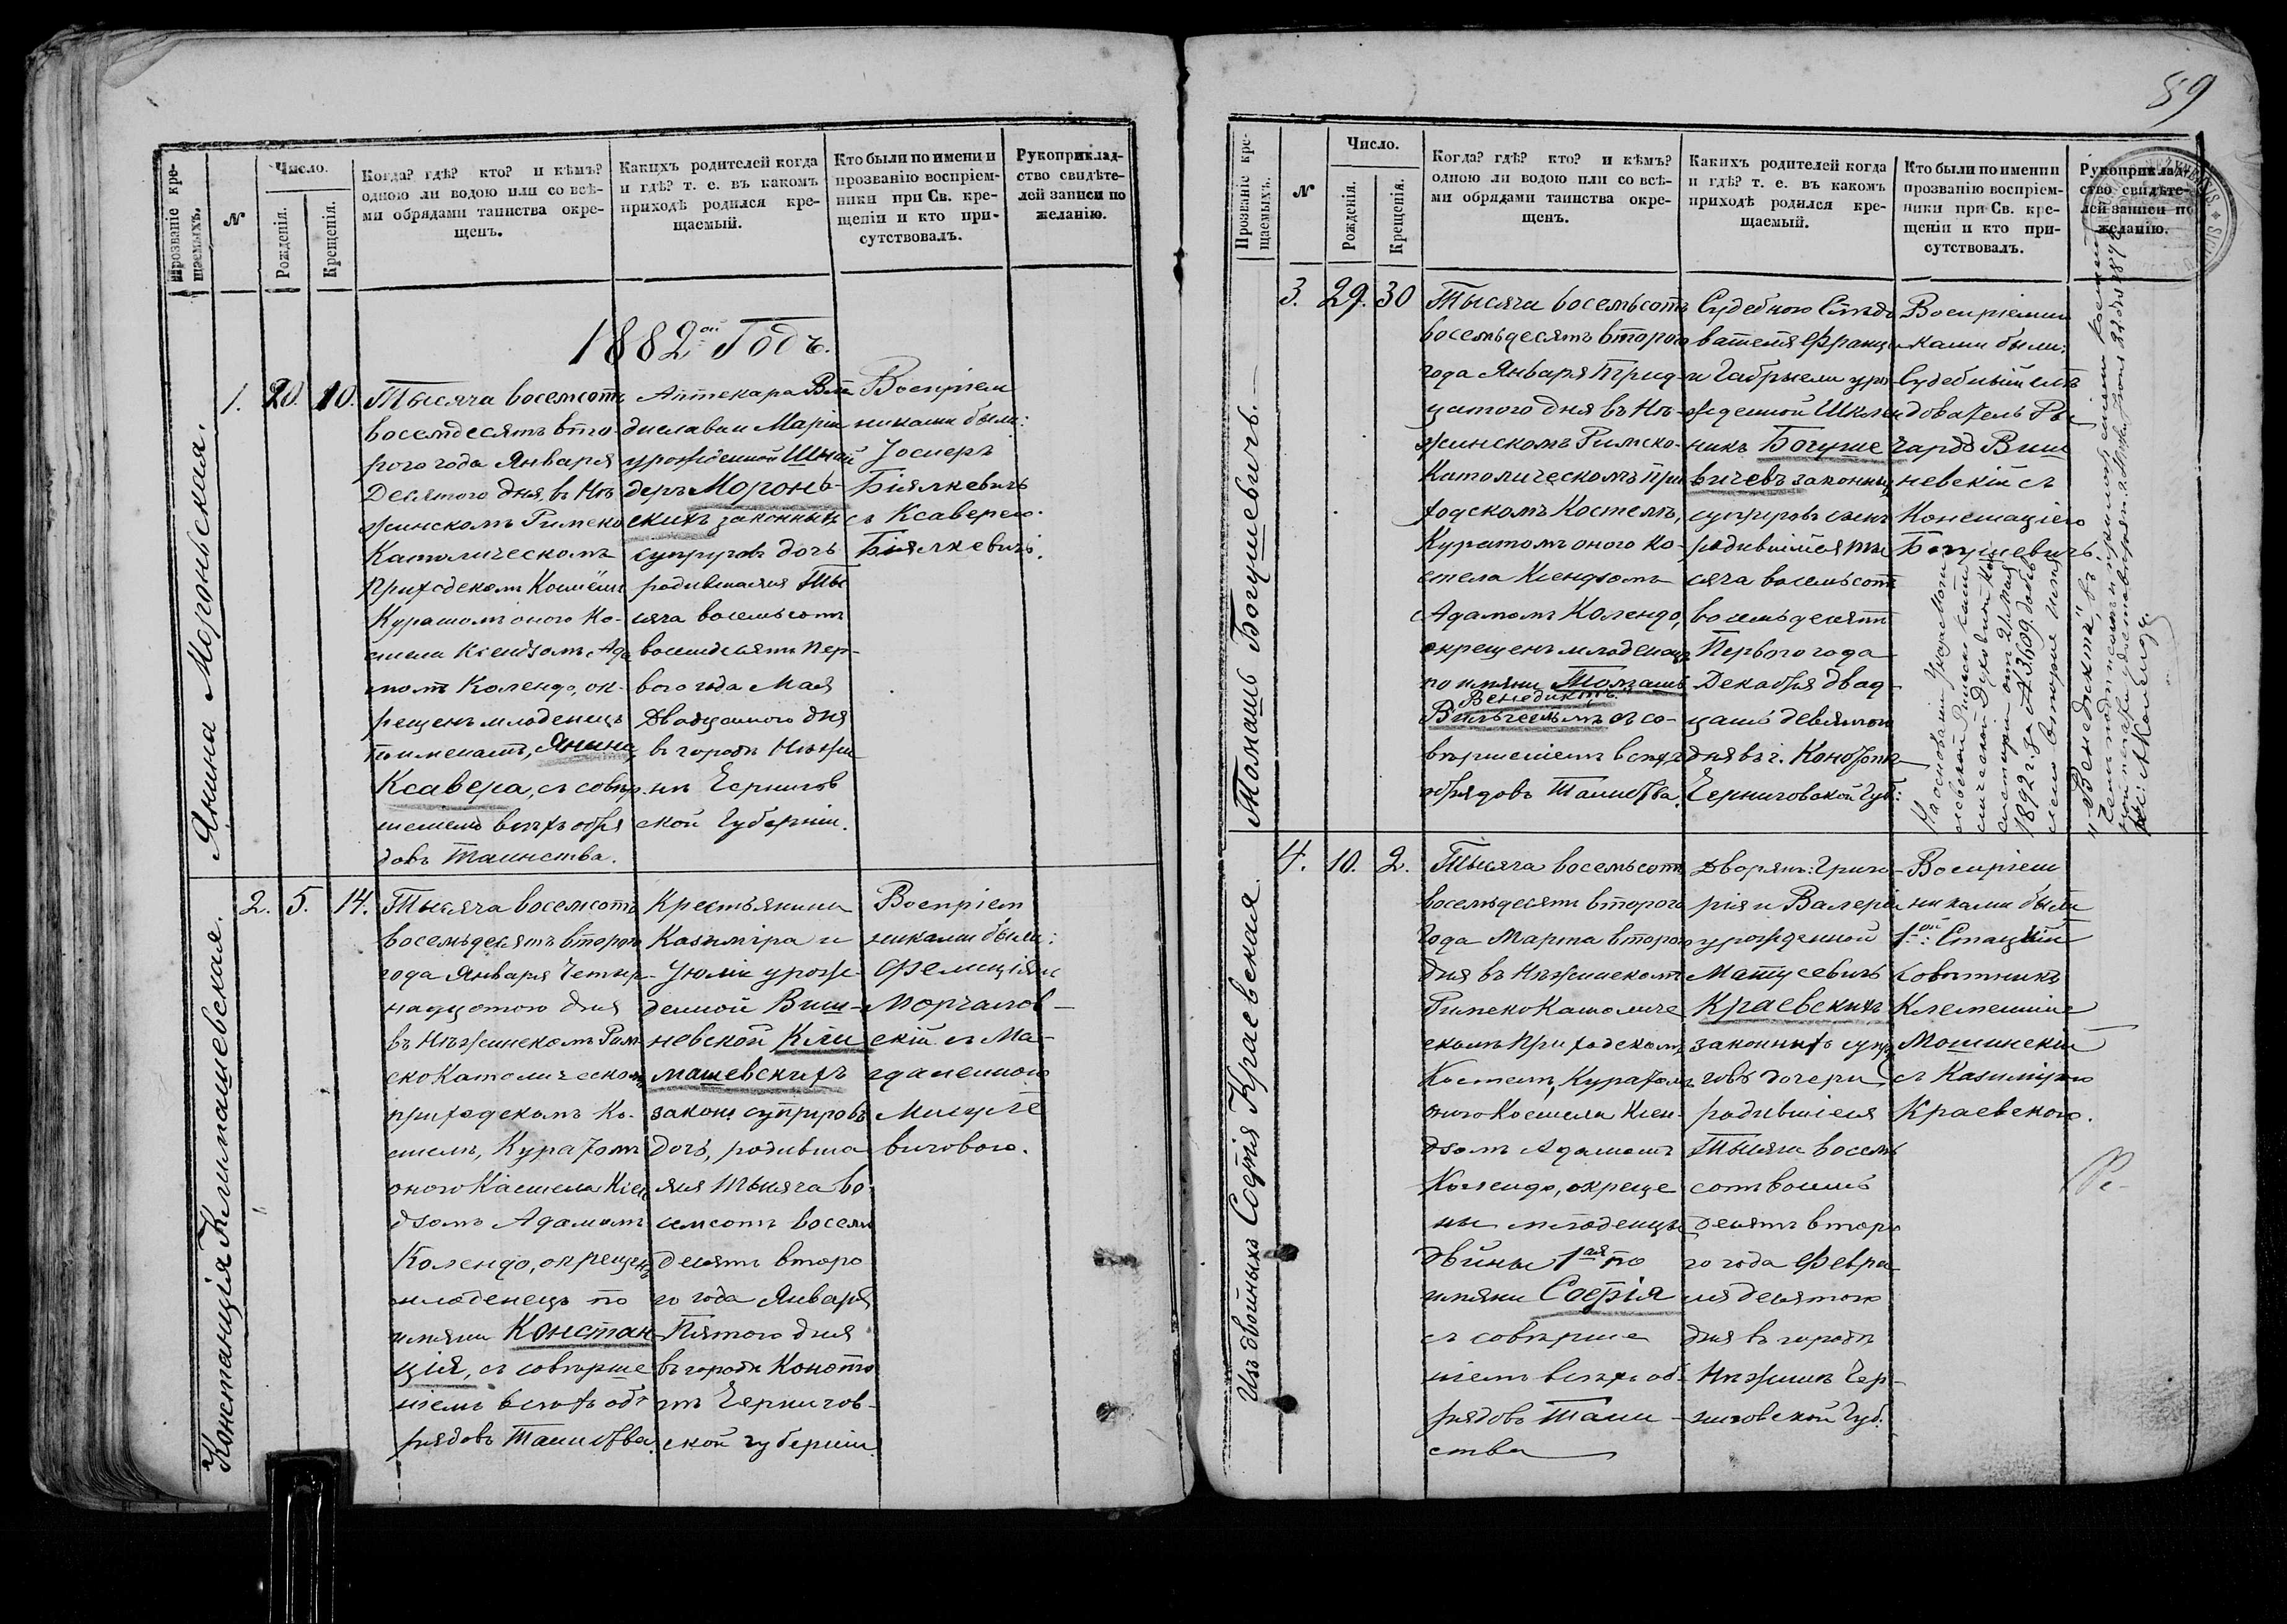 89
Прозваніе кре-
щаемыхъ.
№
Число.
Рожденія.
Крещенія.
Когда? гдѣ? кто? и кѣмъ?
одною ли водою или со всѣ-
ми обрядами таинства окре-
щенъ.
Какихъ родителей когда
и гдѣ? т. е. въ какомъ
приходѣ родился кре-
щаемый.
Кто были по имени и
прозванію воспріем-
ники при Св. кре-
щеніи и кто при-
сутствовалъ.
Рукоприклад-
ство свидѣте-
лей записи по
желанію.
1882ой Годъ.
Янина Мороньская.
1. 20. 10.
Тысяча восемсотъ
восемдесятъ вто-
рого года Января
Десятого дня, въ Нѣ
жинскомъ Римско
Католическомъ
Приходскомъ Костёлѣ
Куратомъ оного Ко-
стела Ксендзомъ Ада
момъ Колендо, ок-
рещенъ младенецъ
по именамъ, Янина
Ксавера, съ совер-
шеніемъ всѣхъ обря
довъ Таинства.
Аптекара Вла
дислава и Маріи
урожденной Шней
деръ Моронь-
скихъ законныхъ
супруговъ дочь
родившаяся Ты
сяча восемьсотъ
восемдесятъ пер-
вого года Мая
Двадцатого дня
въ городѣ Нѣжи
нѣ Чернигов
ской Губерніи.
Воспріем
никами были:
Іосифъ
Біялкевичъ
съ Ксаверею
Біялкевичъ.
Констанція Климашевская.
2. 5. 14.
Тысяча восемсотъ
восемьдесятъ второго
года Января Четыр-
надцатого дня
въ Нѣжинскомъ Рим
ско Католическомъ
приходскомъ Ко-
стелѣ, Куратомъ
оного Костела Ксен
дзомъ Адамомъ
Колендо, окрещенъ
младенецъ по
имяни Констан
ція, съ соверше
ніемъ всѣхъ об
рядовъ Таинства.
Крестьянина
Казиміра и
Юліи урож-
денной Виш-
невской Кли
машевскихъ
закон: супруговъ
дочь, родивша
яся тысяча во
семсотъ восем
десятъ второ
го года Января
Пятого дня
въ городѣ Коното
пѣ Чернигов-
ской губерніи.
Воспріем
никами были:
Фелиціянъ
Морчалов-
скій съ Ма-
гдаленою
Мицуле
вичовою.
Прозваніе кре-
щаемыхъ.
№
Число.
Рожденія.
Крещенія.
Когда? гдѣ? кто? и кѣмъ?
одною ли водою или со всѣ-
ми обрядами таинства окре-
щенъ.
Какихъ родителей когда
и гдѣ? т. е. въ какомъ
приходѣ родился кре-
щаемый.
Кто были по имени и
прозванію воспріем-
ники при Св. кре-
щеніи и кто при-
сутствовалъ.
Рукоприклад-
ство свидѣте-
лей записи по
желанію.
Томашъ Богушевичъ.
3. 29. 30
Тысяча восемьсотъ
восемьдесятъ второго
года Января Трид-
цатого дня въ Нѣ-
жинскомъ Римско-
Католическомъ при
ходскомъ Костелѣ,
Куратомъ оного Ко-
стела Ксендзомъ
Адамомъ Колендо,
окрещенъ младенецъ
по имяни Томашъ
Венедиктъ
Вильгельмъ съ со-
вершеніемъ всѣхъ
обрядовъ Таинства.
Судебного Слѣдо
вателя Франц
и Габрыели уро
жденной Школь
никъ Богуше
вичевъ законных
супруговъ сынъ
родившійся ты
сяча восемьсотъ
восемьдесятъ
Перваго года
Декабря двад
цать девятого
дня въ г. Конотопѣ
Черниговской Губ:
Воспріемни
ками были:
Судебный слѣ
дователь Ры
чардъ Виш
невскій съ
Констанціею
Богушевичъ.
На основаніи Указа Моги
левской Римско Като
лической Духовной Кон
систоріи отъ 21 Мая
1892 г. за № 3609 добав
лено второе имя
"Венедиктъ", въ
Изъ двойныхъ Софія Краевская.
4. 10. 2.
Тысяча восемьсотъ
восемьдесятъ второго
года Марта второго
дня въ Нѣжинскомъ
Римско Католиче
скомъ Приходскомъ
Костелѣ, Куратомъ
оного Костела Ксен-
дзомъ Адамомъ
Колендо, окреще
ны младенцы
двойны 1ая по
имяни Софія
съ соверше
ніемъ всѣхъ об-
рядовъ Таин-
ства
Дворянъ: Григо-
рія и Валеріи
урожденной
Матусевичъ
Краевскихъ
законныхъ супру
говъ дочери,
родившіеся
Тысяча восемь
сотъ восемь
десятъ второ
го года Февра
ля десятого
дня въ городѣ
Нѣжинѣ Чер-
ниговской Губ.
Воспріем
никами были
1ой: Статскій
Совѣтникъ
Клеменсій
Мошинскій
съ Казиміrою
Краевскою.